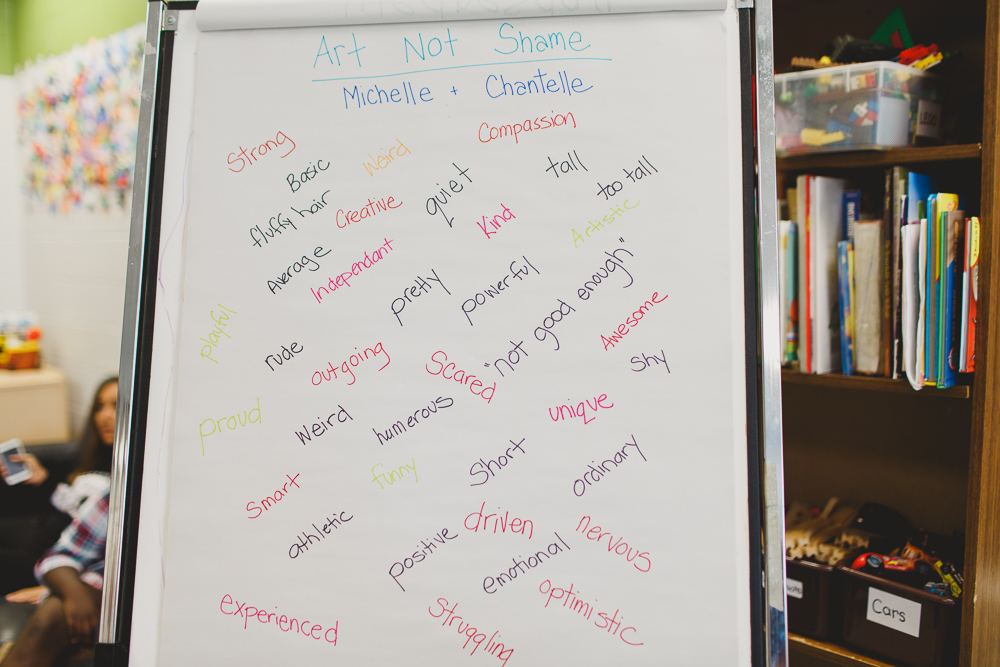 Art Not Shame
Michelle + Chantelle
Compassion
Strong
Basic
Weird
tall
too tall
fluffy hair
Creative
quiet
Kind
Artistic
Average
Independant
pretty
powerful
"not good enough"
playful
rude
outgoing
Scared
Awesome
Shy
proud
Weird
humerous
unique
Smart
funny
Short
ordinary
athletic
positive
driven
nervous
emotional
experienced
Struggling
optimistic
LEGO
Cars